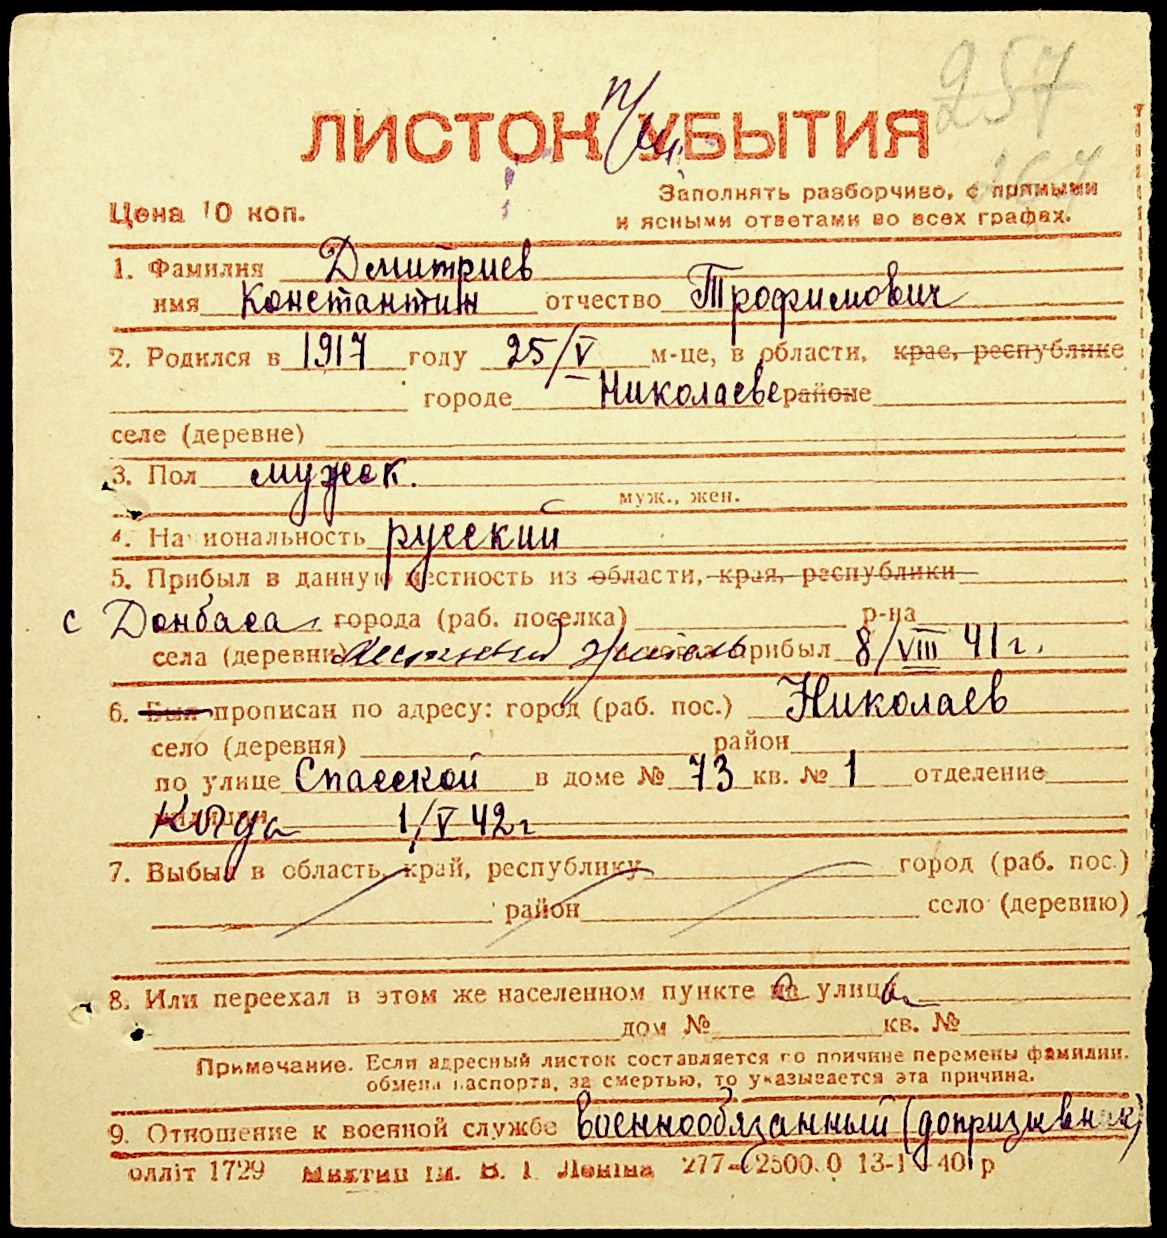 257
167
ЛИСТОК УБЫТИЯ
Цена 10 коп.
Заполнять разборчиво, с прямыми
и ясными ответами во всех графах.
1. Фамилия Дмитриев
имя Константин отчество Трофимович
2. Родился в 1917 году 25/V м-це, в области, крае, республике
городе Николаеве районе
селе (деревне)
3. Пол мужск.
муж., жен.
4. Национальность русский
5. Прибыл в данную местность из области, края, республики
с Донбаса города (раб. поселка) р-на
села (деревни) местный житель прибыл 8/VIII 41 г.
6. Был прописан по адресу: город (раб. пос.) Николаев
село (деревня) район
по улице Спасской в доме № 73 кв. № 1 отделение
милиции Когда 1/V 42 г
7. Выбыл в область, край, республику город (раб. пос.)
район село (деревню)
8. Или переехал в этом же населенном пункте на улицу
дом № кв. №
Примечание. Если адресный листок составляется по причине перемены фамилии,
обмена паспорта, за смертью, то указывается эта причина.
9. Отношение к военной службе военнообязанный (допризывник)
олліт 1729 ім. В. І. Леніна 277—2500.0 13-1 40 р